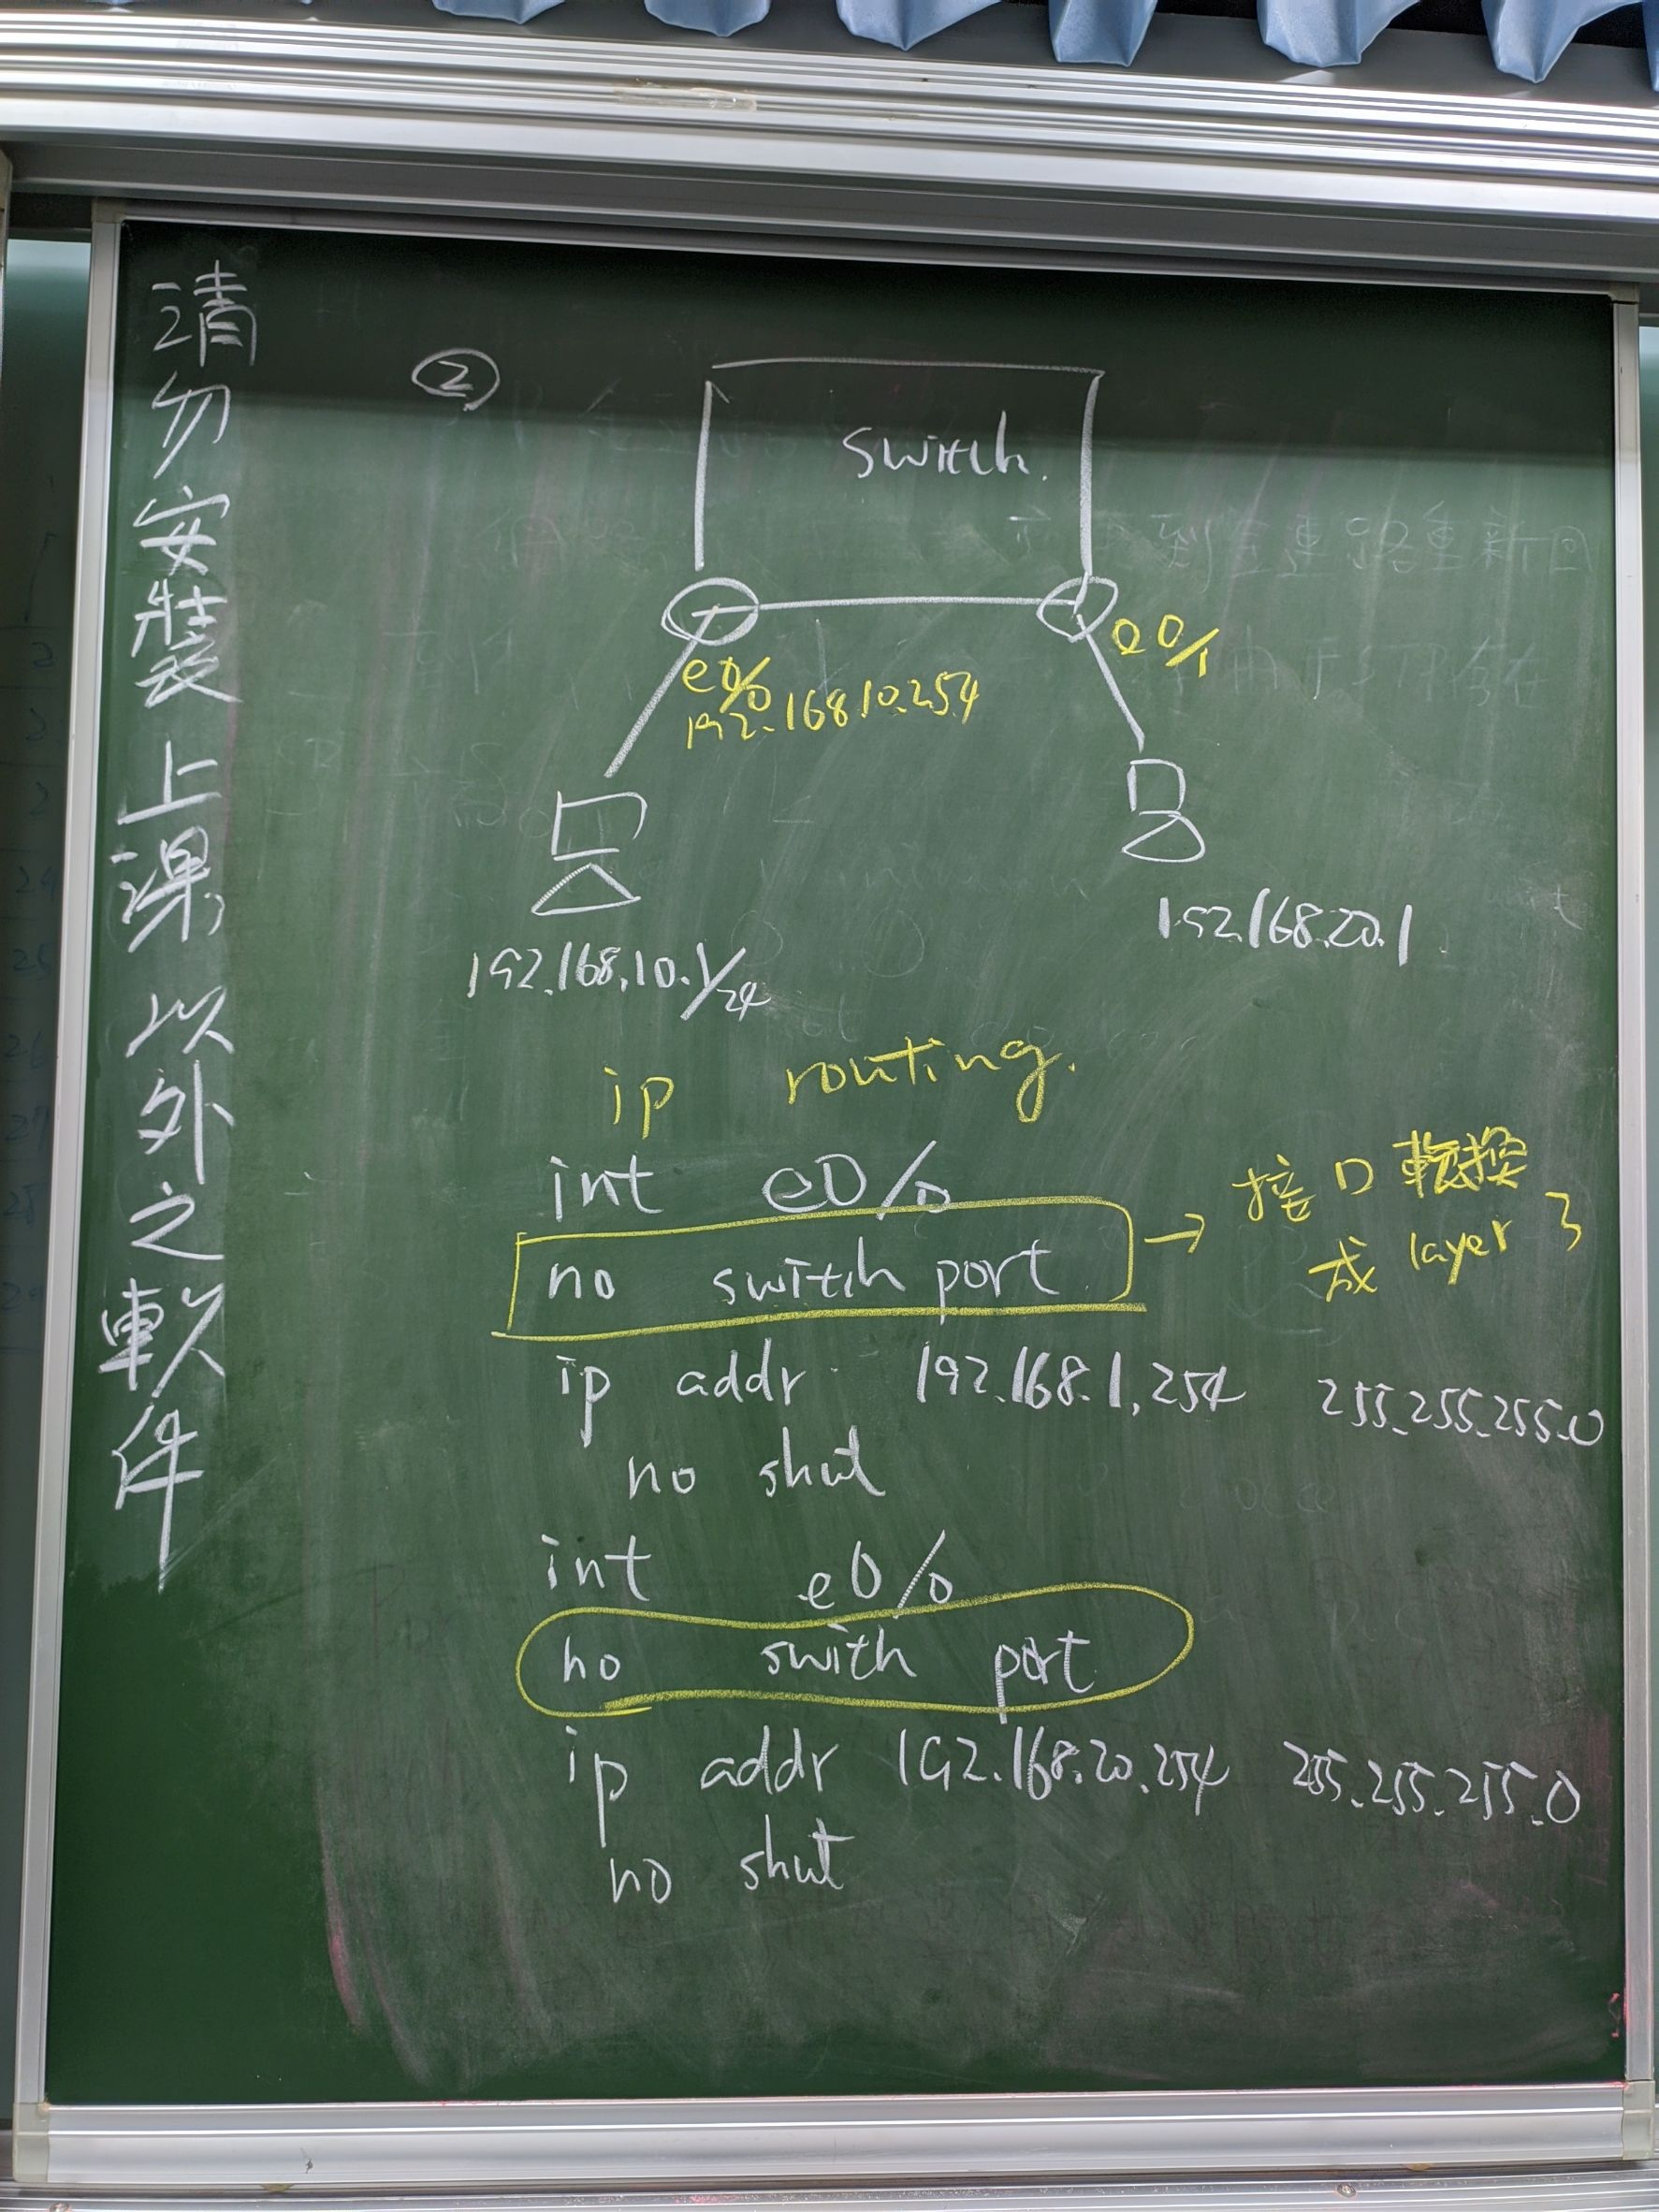 請勿安裝上課以外之軟件
②
switch.
e0/0
192.168.10.254
e0/1
192.168.10.1/24
192.168.20.1
ip routing.
int e0/0
no switch port → 接口轉換
成 layer 3
ip addr 192.168.1.254 255.255.255.0
no shut
int e0/0
no swith port
ip addr 192.168.20.254 255.255.255.0
no shut